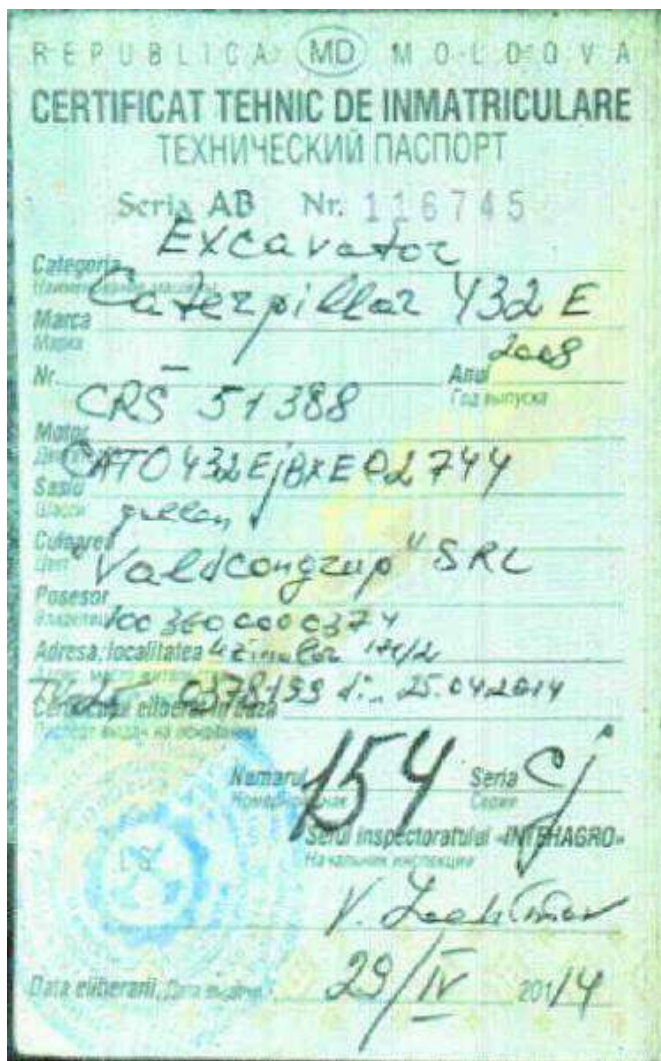 REPUBLICA MD MOLDOVA
CERTIFICAT TEHNIC DE INMATRICULARE
ТЕХНИЧЕСКИЙ ПАСПОРТ
Seria AB Nr. 116745
Excavator
Categoria
Наименование машины
Caterpillar 432 E
Marca
Марка
2008
Nr. – Anul
Год выпуска
CRS 51388
Motor
CAT0432EjBXE02744
Sasiu
Шасси
galben
Culoarea
Цвет
"Valdicongrup" SRL
Posesor
Владелец
1003600000374
Adresa, localitatea Uzinelor 171/2
0378199 din 25.04.2014
Certificatul eliberat in baza
Паспорт выдан на основании
Numarul 154 Seria Cj
Номерной знак Серия
Seful inspectoratului «INTEHAGRO»
Начальник инспекции
LS
V.
Data eliberarii, Дата выдачи 29/IV 2014